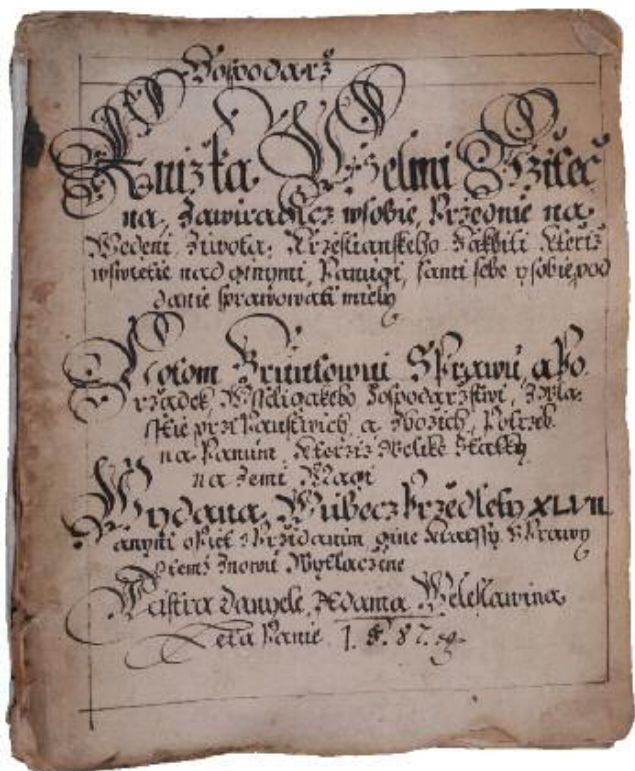 Hospodarž
Knižka Welmi Vžiteč
na, Zawiragicz wsobie, Przednie na
Wedeni Ziwota, Krzestianskeho, Yakbili kteriž
wswietie nad ginymi, Panugi, sami sebe y sobie pod
danie sprawowati miely
Potom Gruntowni Sprawu, a Po
rzadek, Wsseligakeho Hospodarzstwi, Zwla
sstie przi Panstwich a Zbožich, Potrzeb
na Panum, kterziž Welike Statky
na Zemi Magi
Wydana, Wubecz Przedlety XLVII
a nyni opiet s Przidanim gine kratssy Sprawy
o temž Znowu Wytlačene
Mistra Danyele, Adama Weleslawina
Leta Panie 1.5.87.